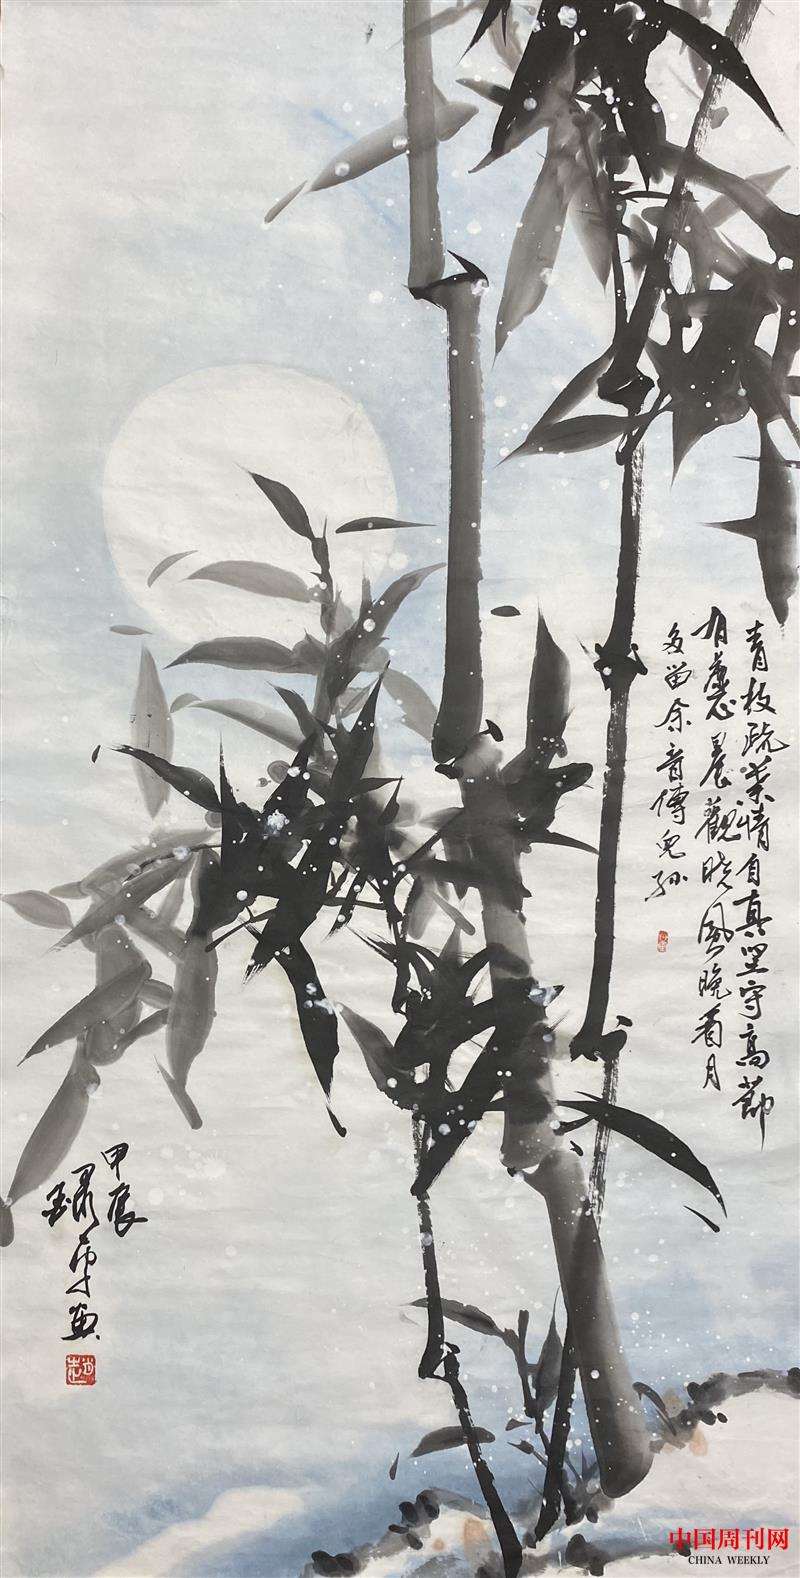 青枝疏葉情自真坚守高節
有虚心晨觀晓風晚看月
多留余音傳兒孙
甲辰
中国周刊网
CHINA WEEKLY